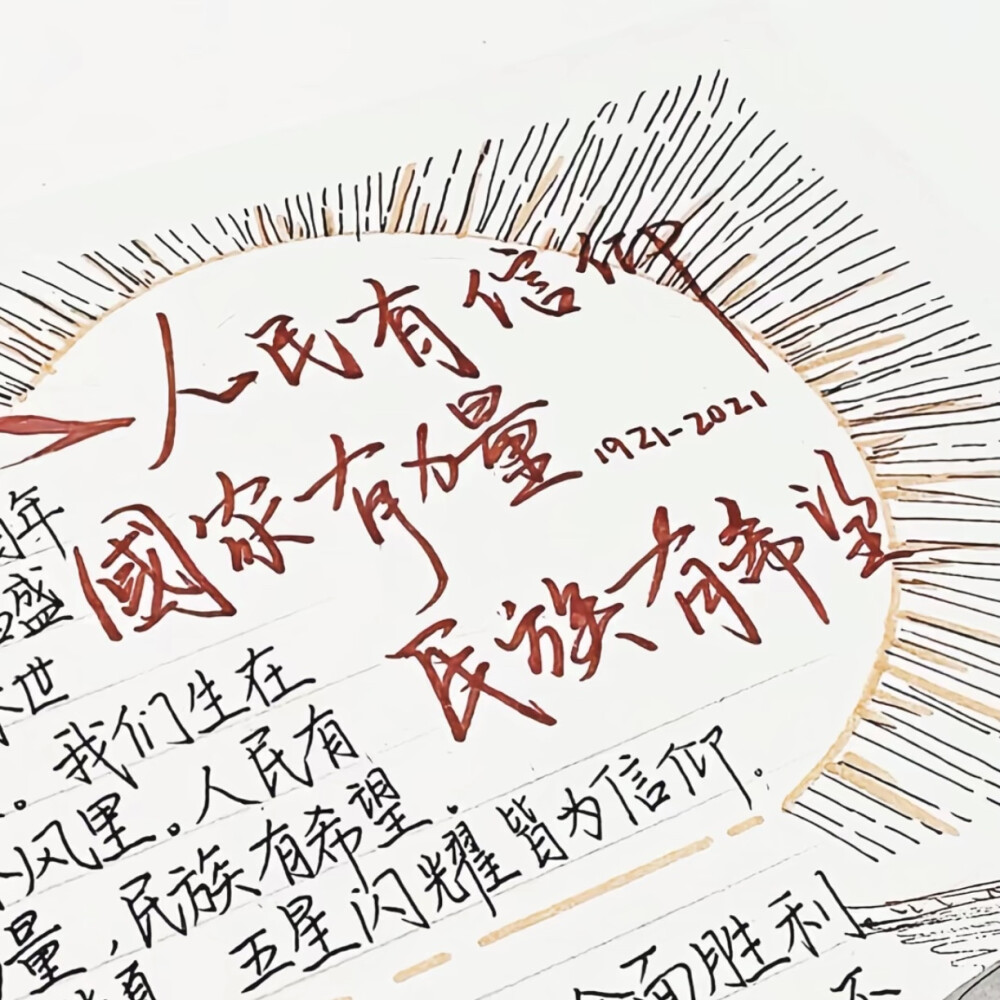 人民有信仰
國家有力量
1921-2021
民族有希望
年
盛
世
我们生在
风里。人民有
量,民族有希望。
五星闪耀皆为信仰.
面胜利